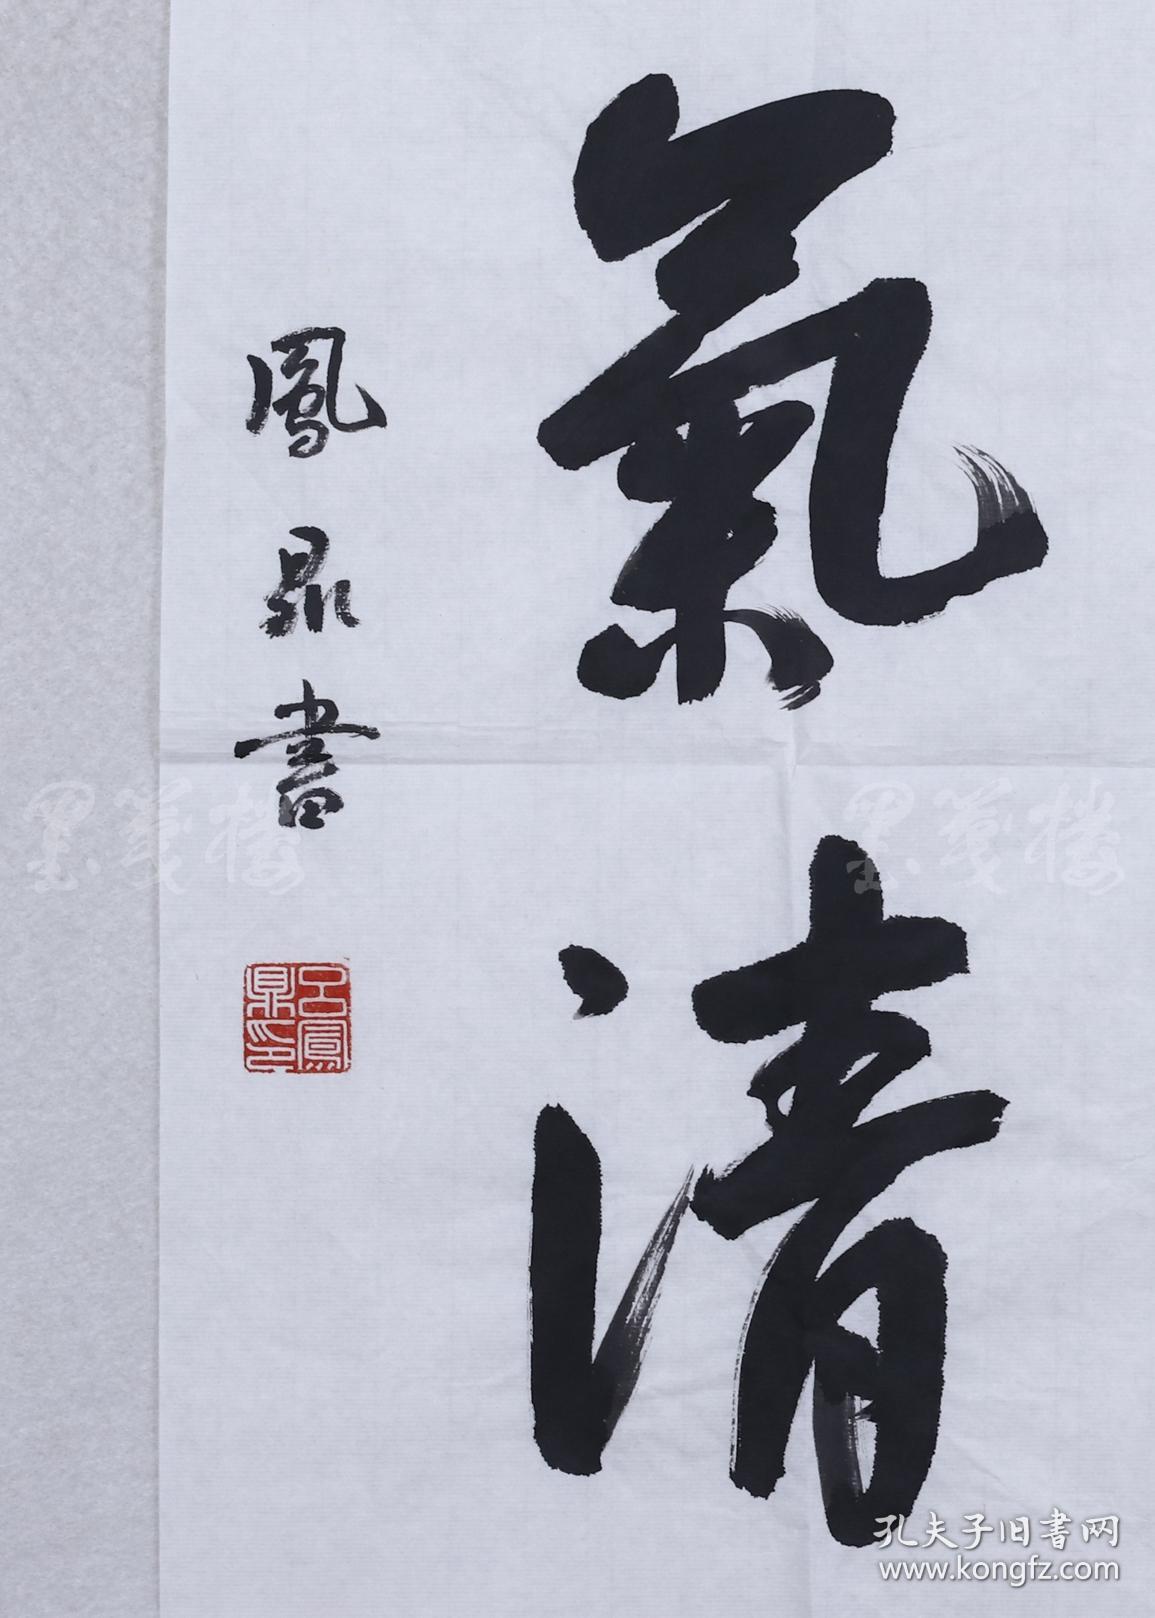 氣清
鳳鼎書
呂鳳鼎印
墨笺楼
墨笺楼
孔夫子旧書网
www.kongfz.com